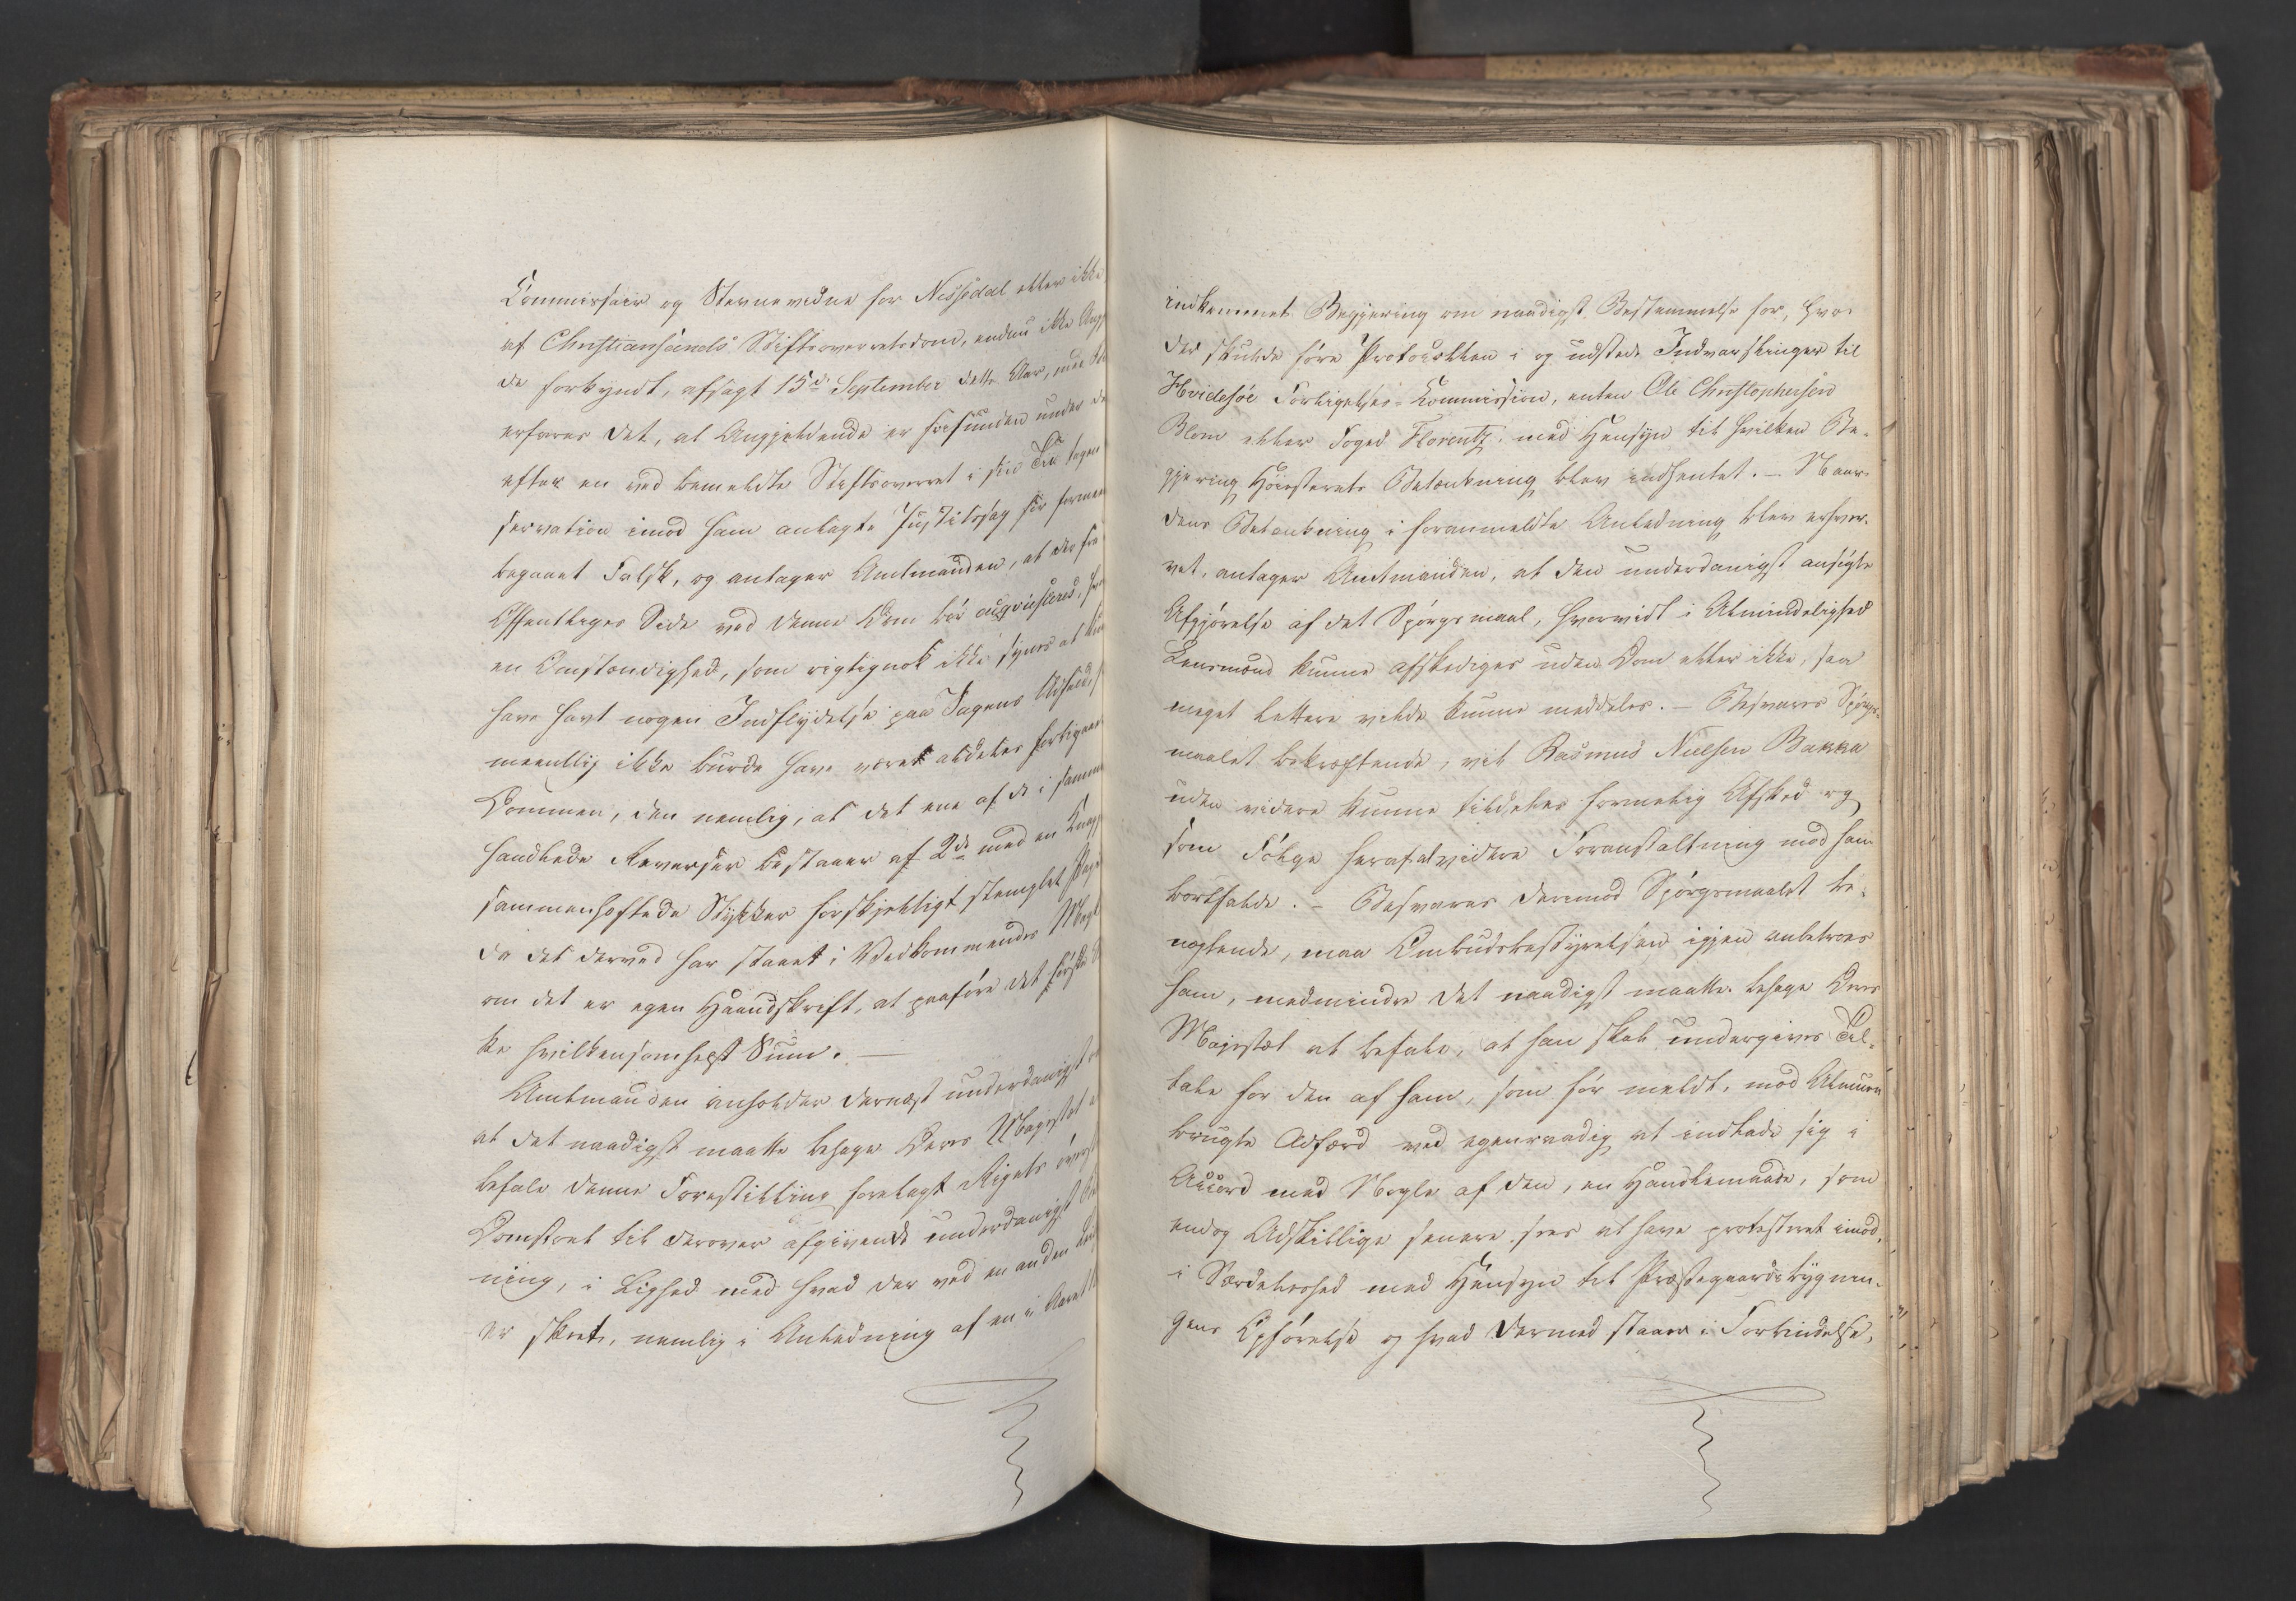 Commissair og Stevnevidne for Nissedal eller ikke
af Christiansands Stiftsoverretsdom, endnu ikke
de forkyndt, afsagt 15de September dette Aar,
erfares det, at Angjeldende er frifunden under de
efter en ved bemeldte Stiftsoverret i sin Tid tagen
servation imod ham anlagte Justitssag for formeen
begaaet Falsk, og antager Amtmanden, at der fra
Offentliges Side ved denne Dom bør acqviesceres,
en Omstændighed, som rigtignok ikke synes at
have havt nogen Indflydelse paa Sagens Udfald,
meentlig ikke burde have været aldeles forbigaaet
Dommen, den nemlig, at det ene af de i samme
handlede Reverser bestaaer af 2de med en Knap
sammenhæftede Stykker forskjelligt stemplet Papi
da det derved har staaet i Vedkommendes Magt
om det er egen Haandskrift, at paaføre det første
ke hvilkensomhelst Sum. —
Amtmanden anholder dernæst underdanigst
at det naadigst maatte behage Deres Majestæt
befale denne Forestilling forelagt Rigets øverste
Domstoel til derover afgivende underdanigst
ning, i Lighed med hvad der ved en anden
er skeet, nemlig i Anledning af en i Aaret
indkommet Begjering om naadigst Bestemmelse for, hvo
der skulde føre Protocollen i og udstede Indvarslinger til
Hvidesøe Forligelses-Commission, enten Ole Christophersen
Blom eller Foged Florentz, med Hensyn til hvilken Be-
gjering Høiesterets Betænkning blev indhentet. – Naar
dens Betænkning i foranmeldte Anledning blev erhver-
vet, antager Amtmanden, at den underdanigst ansøgte
Afgjørelse af det Spørgsmaal, hvorvidt i Almindelighed
Lensmænd kunne afskediges uden Dom eller ikke, saa
meget lettere vilde kunne meddeles. – Besvares Spørgs-
maalet bekræftende, vil Rasmus Nielsen Bakka
uden videre kunne tildeles formelig Afsked og
som Følge heraf al videre Foranstaltning mod ham
bortfalde. – Besvares derimod Spørgsmaalet be-
nægtende, maa Ombudsbestyrelsen igjen anbetroes
ham, medmindre det naadigst maatte behage Deres
Majestæt at befale, at han skal undergives Til-
tale for den af ham, som før meldt, mod Almuen
brugte Adfærd ved egenraadig at indlade sig i
Accord med Nogle af den, en Handlemaade, som
endog Adskillige senere sees at have protesteret imod,
i Særdeleshed med Hensyn til Præstegaardsbygnin-
gens Opførelse og hvad dermed staaer i Forbindelse,